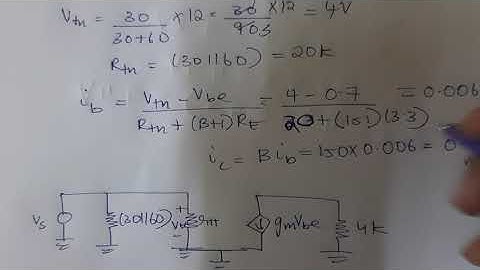 Vtn = 30/30+60 × 12 = 30/903 × 12 = 4V
Rtn = (30||60) = 20K
ib = Vtn - Vbe / Rtn + (B+1) RE = 4 - 0.7 / 20 + (151)(3.3) = 0.006
ic = Bib = 150 × 0.006 = 0
Vs (30||60) + Vbe rπ gmVbe 4K